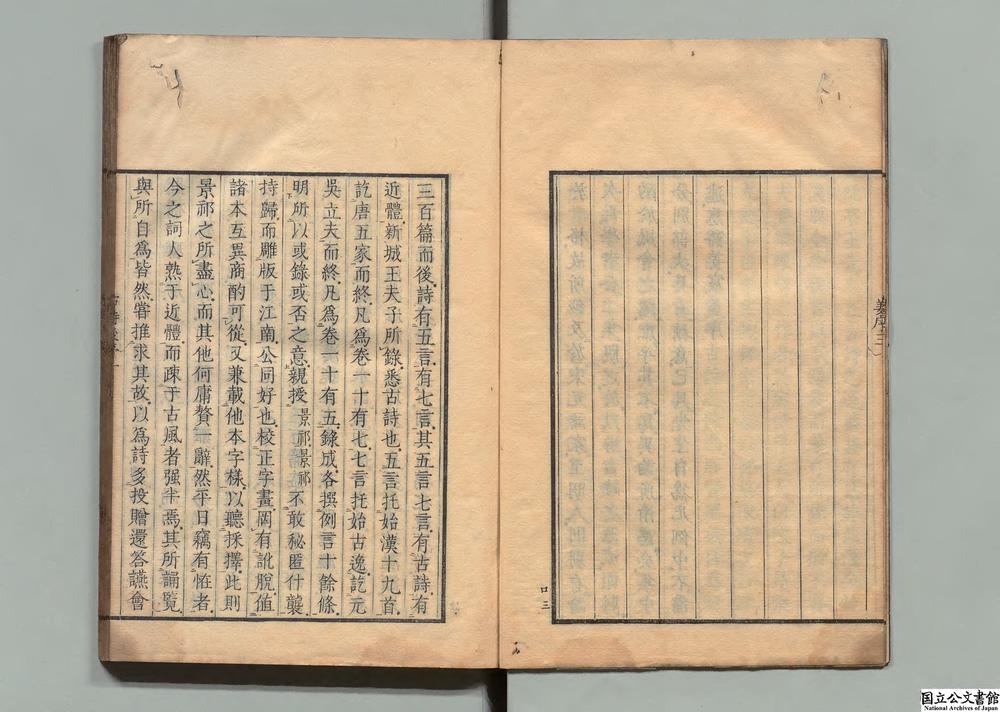 三百篇而後詩有五言有七言其五言七言有古詩有
近體新城王夫子所錄悉古詩也五言托始漢十九首
訖唐五家而終凡爲卷一十有七七言托始古逸訖元
吳立夫而終凡爲卷一十有五錄成各撰例言十餘條
明所以或錄或否之意親授景祁景祁不敢秘匿什襲
持歸而雕版于江南公同好也校正字畫罔有訛脫值
諸本互異商酌可從又兼載他本字樣以聽採擇此則
景祁之所盡心而其他何庸贅一辭然平日竊有恠者
今之詞人熟于近體而疎于古風者强半焉其所誦覽
與所自爲皆然甞推求其故以爲詩多投贈還答讌會
口三
国立公文書館
National Archives of Japan